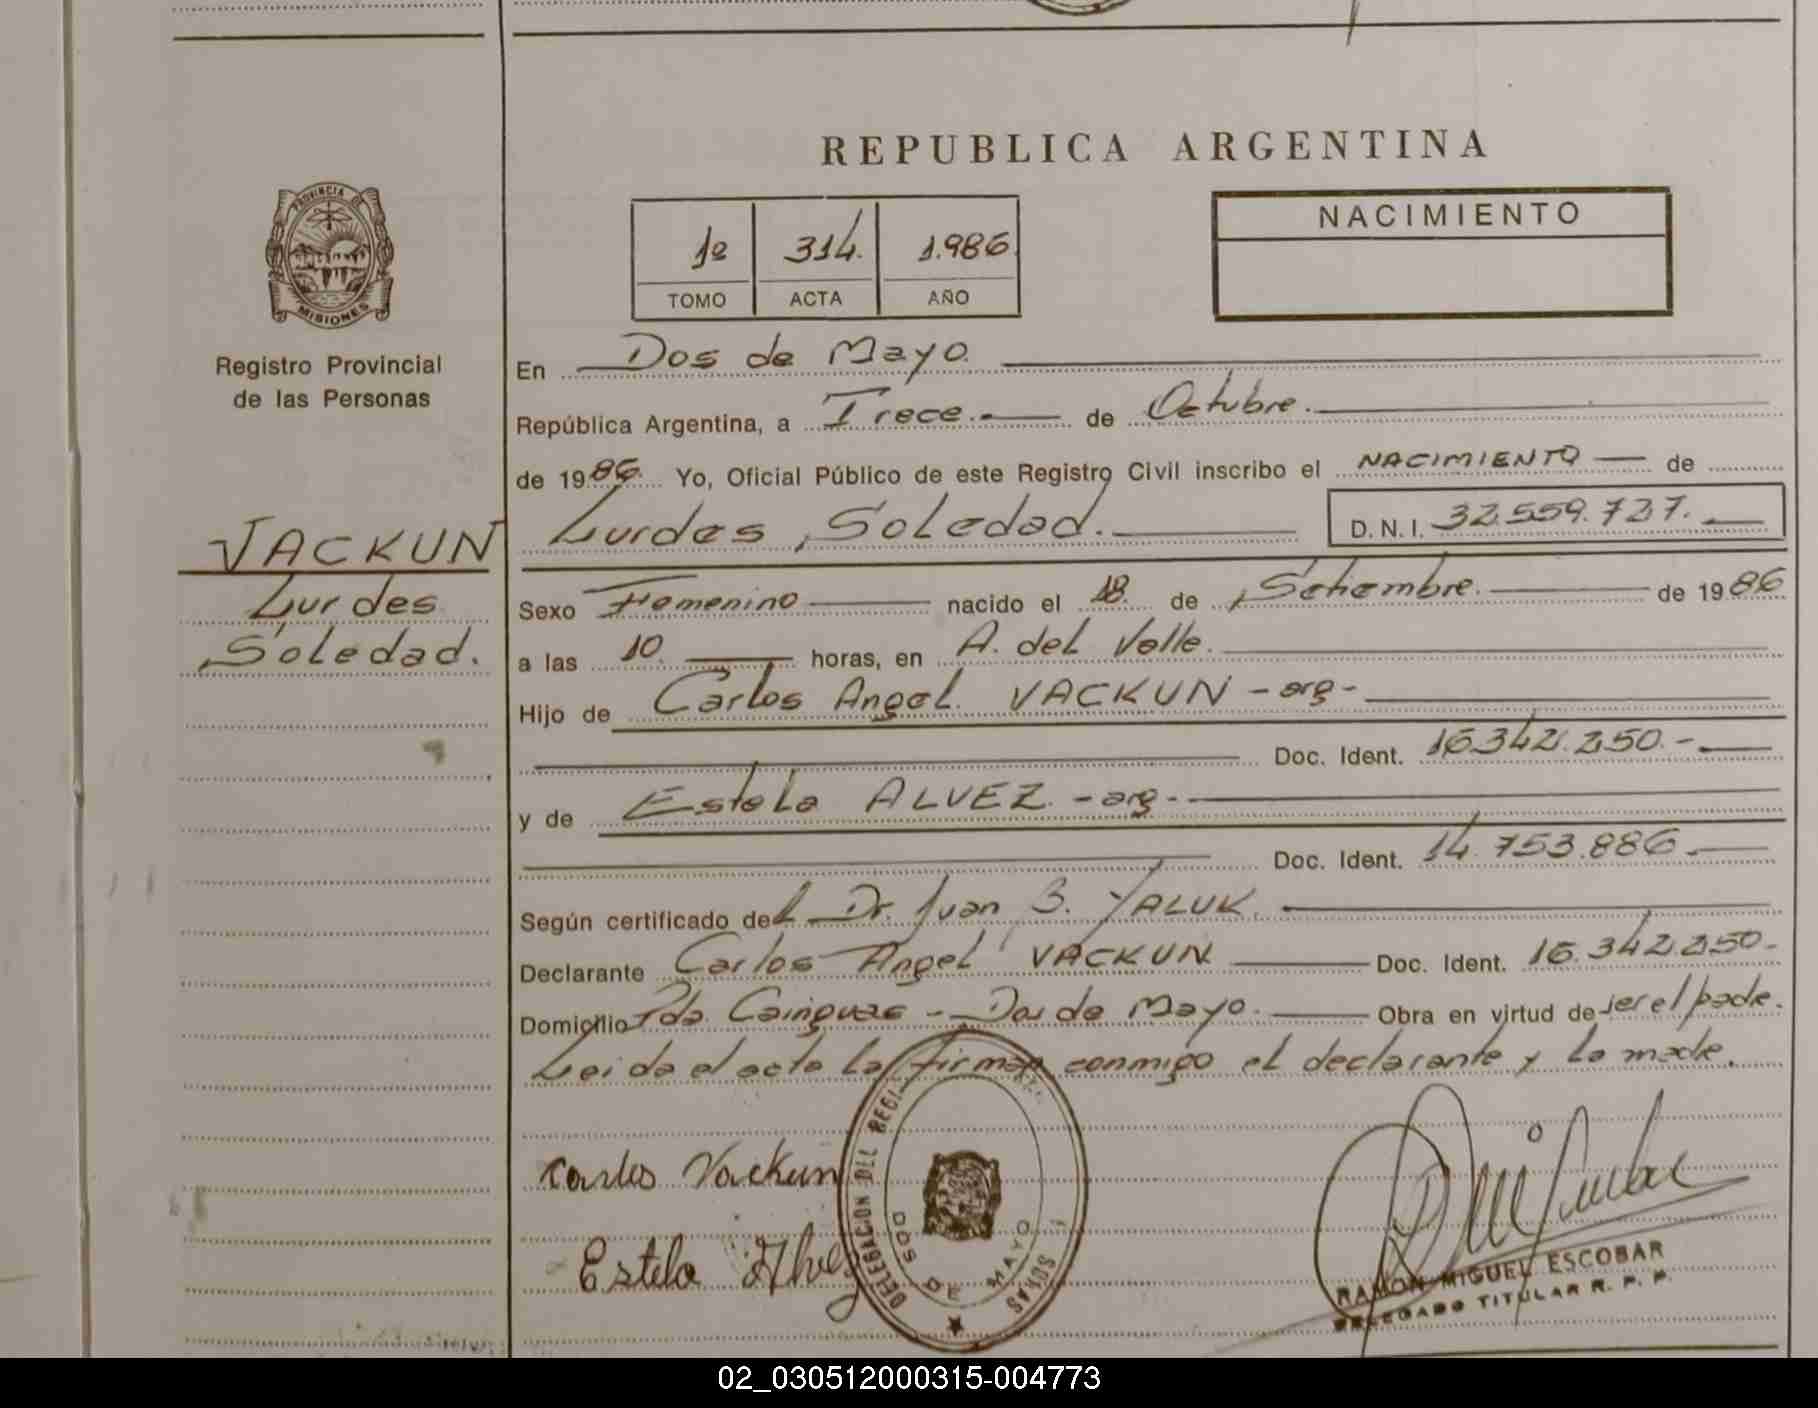 REPUBLICA ARGENTINA
PROVINCIA DE
MISIONES
Registro Provincial
de las Personas
1º 314. 1.986
TOMO ACTA AÑO
NACIMIENTO
En Dos de Mayo.
República Argentina, a Trece.- de Octubre.
de 1986. Yo, Oficial Público de este Registro Civil inscribo el NACIMIENTO de
VACKUN
Lurdes
Soledad.
Lurdes Soledad. D.N.I. 32.559.727.
Sexo Femenino nacido el 18 de Setiembre. de 1986
a las 10. horas, en A. del Valle.
Hijo de Carlos Angel VACKUN - arg -
Doc. Ident. 16.342.250.-
y de Estela ALVEZ. - arg -
Doc. Ident. 14.753.886.
Según certificado del Dr. Juan B. YALUK.
Declarante Carlos Angel VACKUN Doc. Ident. 16.342.250.-
Domicilio Pda Cainguas - Dos de Mayo. Obra en virtud de ser el padre.
Leida el acta la firman conmigo el declarante y la madre.
Carlos Vackun
Estela Alvez
DELEGACION DEL
DOS DE MAYO
RAMON MIGUEL ESCOBAR
DELEGADO TITULAR R. P. P.
02_030512000315-004773